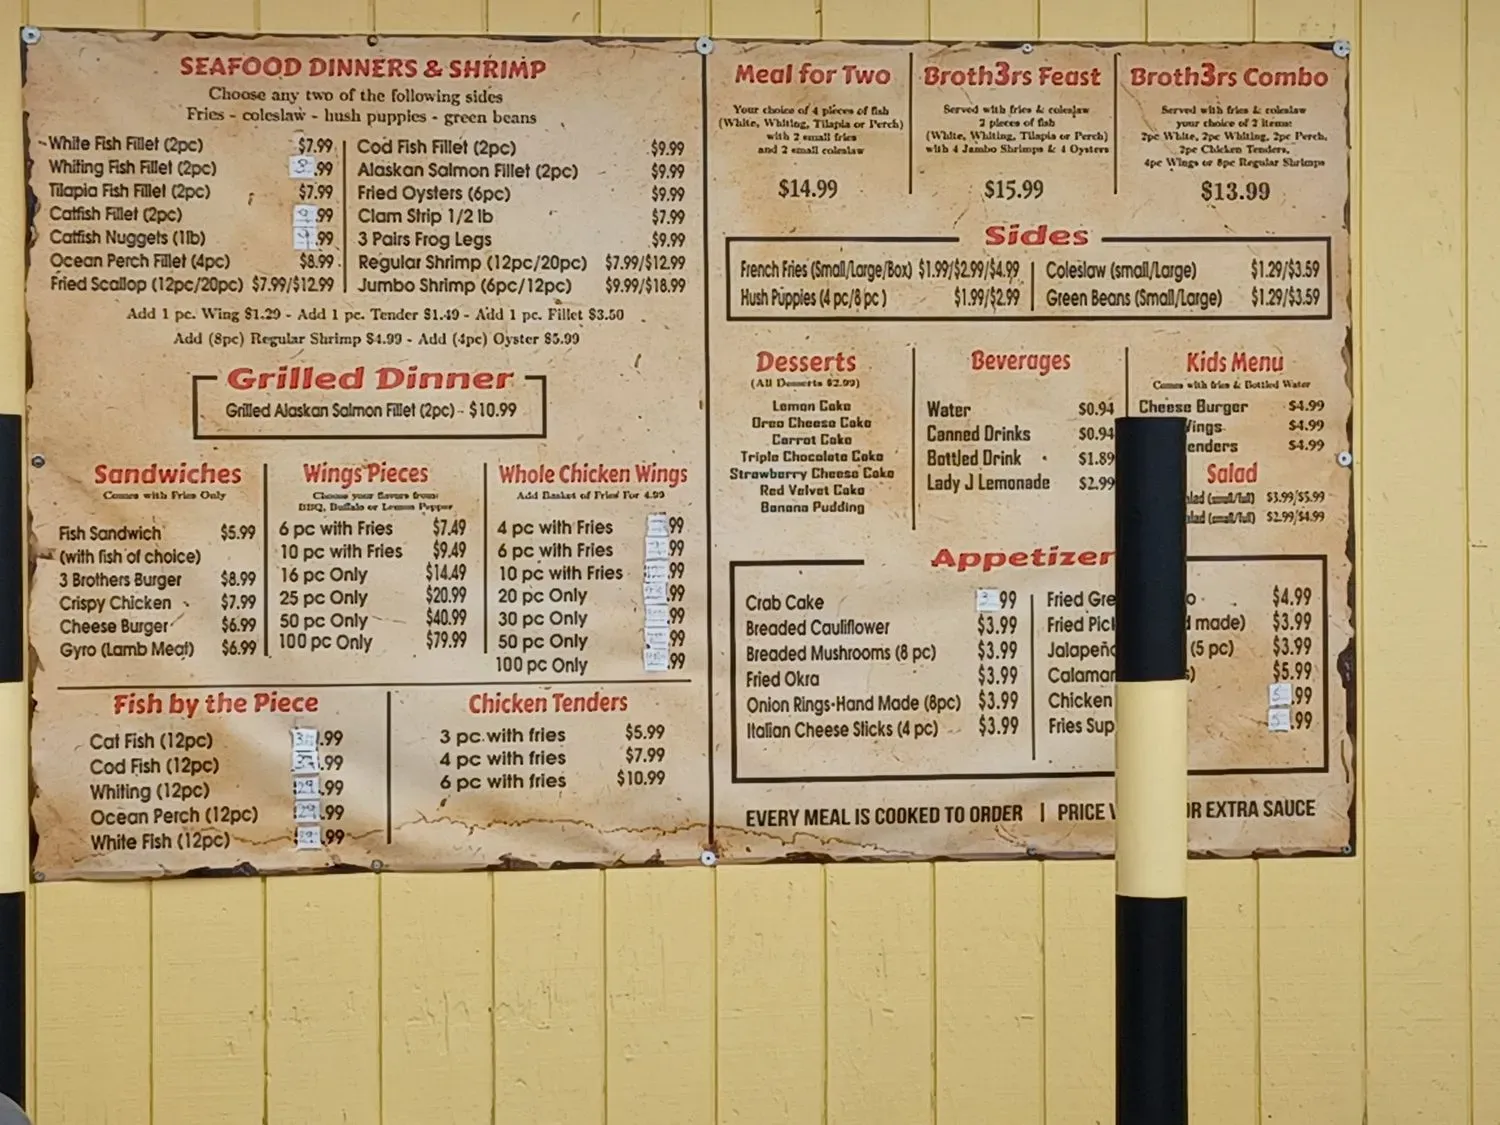 SEAFOOD DINNERS & SHRIMP
Choose any two of the following sides
Fries - coleslaw - hush puppies - green beans
White Fish Fillet (2pc) $7.99
Whiting Fish Fillet (2pc) 8.99
Tilapia Fish Fillet (2pc) $7.99
Catfish Fillet (2pc) 9.99
Catfish Nuggets (1lb) 9.99
Ocean Perch Fillet (4pc) $8.99
Fried Scallop (12pc/20pc) $7.99/$12.99
Cod Fish Fillet (2pc) $9.99
Alaskan Salmon Fillet (2pc) $9.99
Fried Oysters (6pc) $9.99
Clam Strip 1/2 lb $7.99
3 Pairs Frog Legs $9.99
Regular Shrimp (12pc/20pc) $7.99/$12.99
Jumbo Shrimp (6pc/12pc) $9.99/$18.99
Add 1 pc. Wing $1.29 - Add 1 pc. Tender $1.49 - Add 1 pc. Fillet $3.50
Add (8pc) Regular Shrimp $4.99 - Add (4pc) Oyster $5.99
Grilled Dinner
Grilled Alaskan Salmon Fillet (2pc) - $10.99
Sandwiches
Comes with Fries Only
Fish Sandwich $5.99
(with fish of choice)
3 Brothers Burger $8.99
Crispy Chicken $7.99
Cheese Burger $6.99
Gyro (Lamb Meat) $6.99
Wings Pieces
Choose your flavors from:
BBQ, Buffalo or Lemon Pepper
6 pc with Fries $7.49
10 pc with Fries $9.49
16 pc Only $14.49
25 pc Only $20.99
50 pc Only $40.99
100 pc Only $79.99
Whole Chicken Wings
Add Basket of Fries For 4.99
4 pc with Fries .99
6 pc with Fries .99
10 pc with Fries .99
20 pc Only .99
30 pc Only .99
50 pc Only .99
100 pc Only .99
Fish by the Piece
Cat Fish (12pc) .99
Cod Fish (12pc) .99
Whiting (12pc) 29.99
Ocean Perch (12pc) 29.99
White Fish (12pc) .99
Chicken Tenders
3 pc with fries $5.99
4 pc with fries $7.99
6 pc with fries $10.99
Meal for Two
Your choice of 4 pieces of fish
(White, Whiting, Tilapia or Perch)
with 2 small fries
and 2 small coleslaw
$14.99
Broth3rs Feast
Served with fries & coleslaw
2 pieces of fish
(White, Whiting, Tilapia or Perch)
with 4 Jambo Shrimps & 4 Oysters
$15.99
Broth3rs Combo
Served with fries & coleslaw
your choice of 2 items:
2pc White, 2pc Whiting, 2pc Perch,
2pc Chicken Tenders,
4pc Wings or 8pc Regular Shrimps
$13.99
Sides
French Fries (Small/Large/Box) $1.99/$2.99/$4.99
Hush Puppies (4 pc/8 pc ) $1.99/$2.99
Coleslaw (small/Large) $1.29/$3.59
Green Beans (Small/Large) $1.29/$3.59
Desserts
(All Desserts $2.99)
Lemon Cake
Oreo Cheese Cake
Carrot Cake
Triple Chocolate Cake
Strawberry Cheese Cake
Red Velvet Cake
Banana Pudding
Beverages
Water $0.94
Canned Drinks $0.94
Bottled Drink $1.89
Lady J Lemonade $2.99
Kids Menu
Comes with fries & Bottled Water
Cheese Burger $4.99
ings $4.99
enders $4.99
Salad
lad (small/full) $3.99/$5.99
lad (small/full) $2.99/$4.99
Appetizer
Crab Cake 99
Breaded Cauliflower $3.99
Breaded Mushrooms (8 pc) $3.99
Fried Okra $3.99
Onion Rings-Hand Made (8pc) $3.99
Italian Cheese Sticks (4 pc) $3.99
Fried Gre o $4.99
Fried Pick d made) $3.99
Jalapeño (5 pc) $3.99
Calamar s) $5.99
Chicken 5.99
Fries Sup 5.99
EVERY MEAL IS COOKED TO ORDER | PRICE OR EXTRA SAUCE